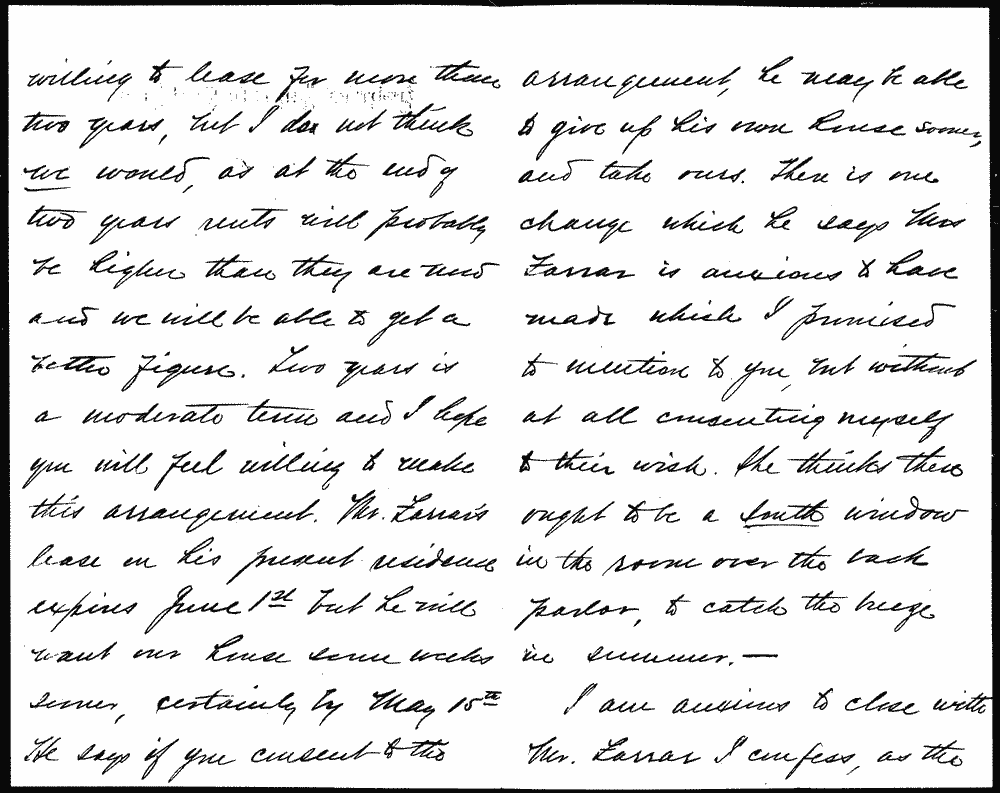 willing to lease for more than
two years, but I do not think
we would, as at the end of
two years rents will probably
be higher than they are now
and we will be able to get a
better figure. Two years is
a moderate term and I hope
you will feel willing to make
this arrangement. Mr. Farrar's
lease on his present residence
expires June 1st but he will
want our house some weeks
sooner, certainly by May 15th
He says if you consent to the
arrangement, he may be able
to give up his own house sooner,
and take ours. There is one
change which he says Mrs
Farrar is anxious to have
made which I promised
to mention to you, but without
at all consenting myself
to their wish. She thinks there
ought to be a south window
in the room over the back
parlor, to catch the breeze
in summer. —
I am anxious to close with
Mr. Farrar I confess, as the